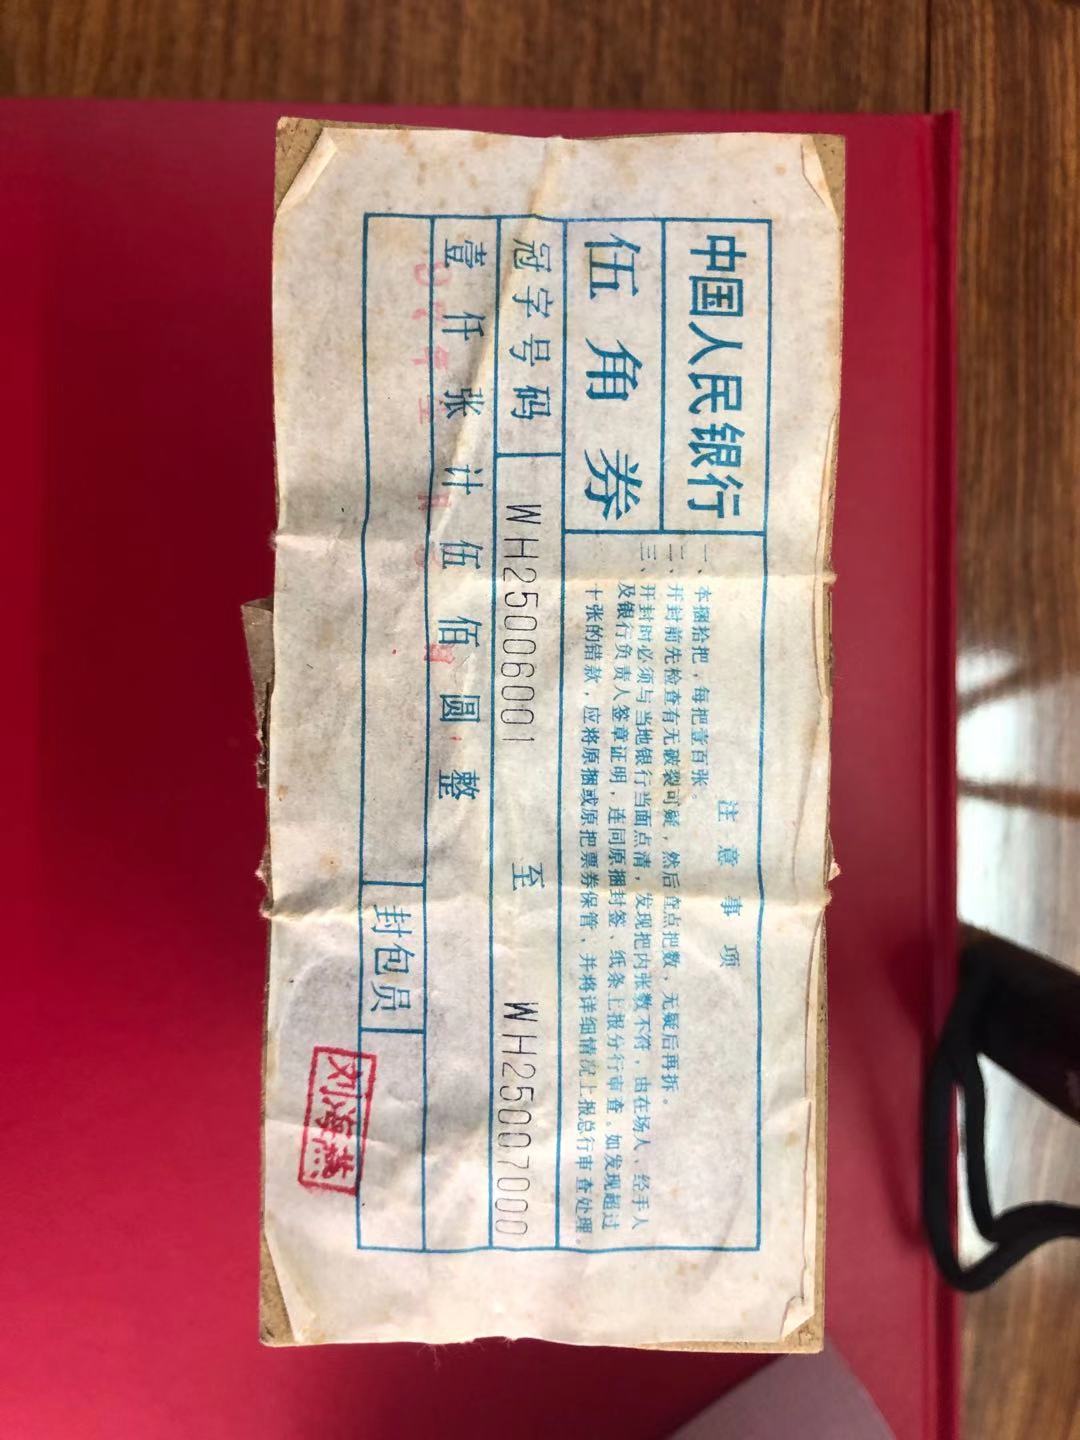 中国人民银行
伍角券
注意事项
一、本捆拾把，每把壹百张。
二、开封前先检查有无破裂可疑，然后查点把数，无疑后再拆。
三、开封时必须与当地银行当面点清，发现把内张数不符，由在场人、经手人
及银行负责人签章证明，连同原捆封签、纸条上报分行审查。如发现超过
十张的错款，应将原捆或原把票券保管，并将详细情况上报总行审查处理。
冠字号码 WH25006001 至 WH25007000
壹仟张计伍佰圆整
封包员
刘海燕